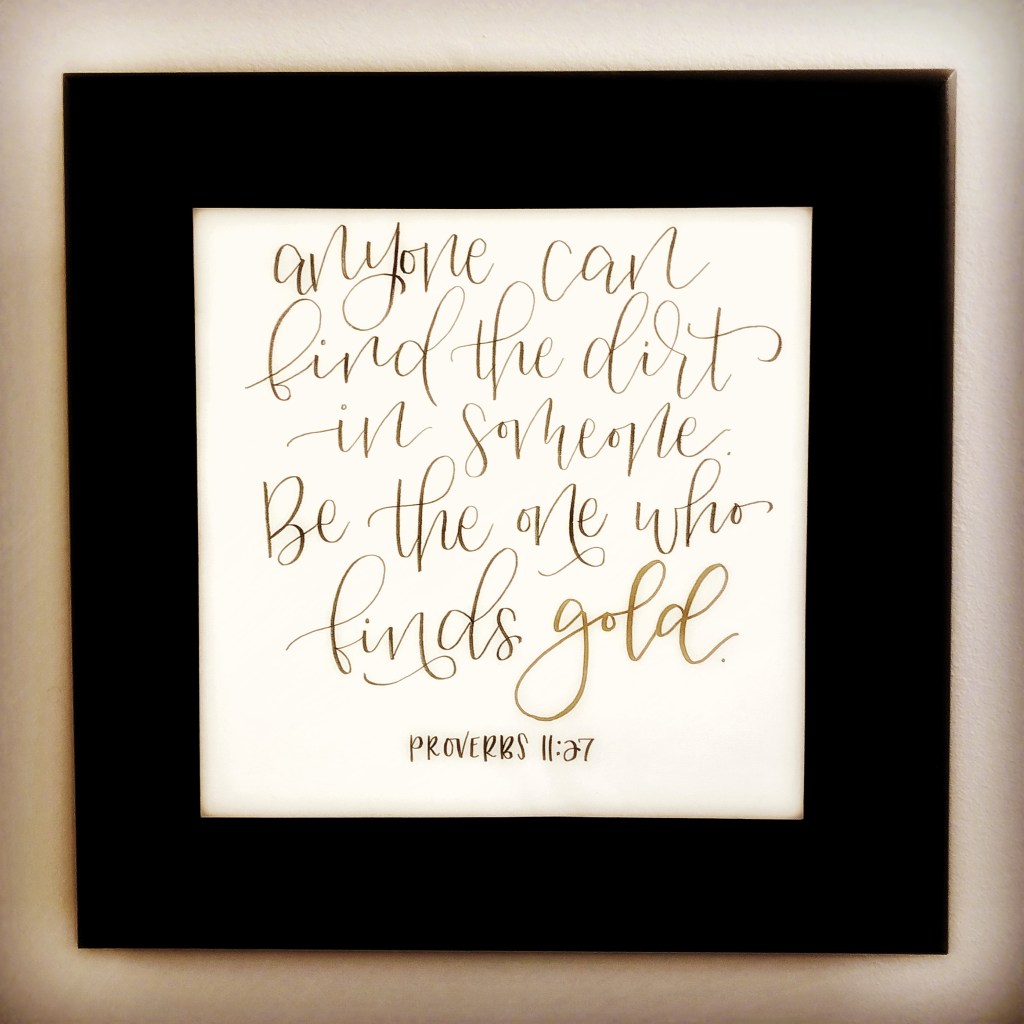 anyone can
find the dirt
in someone.
Be the one who
finds gold.
PROVERBS 11:27